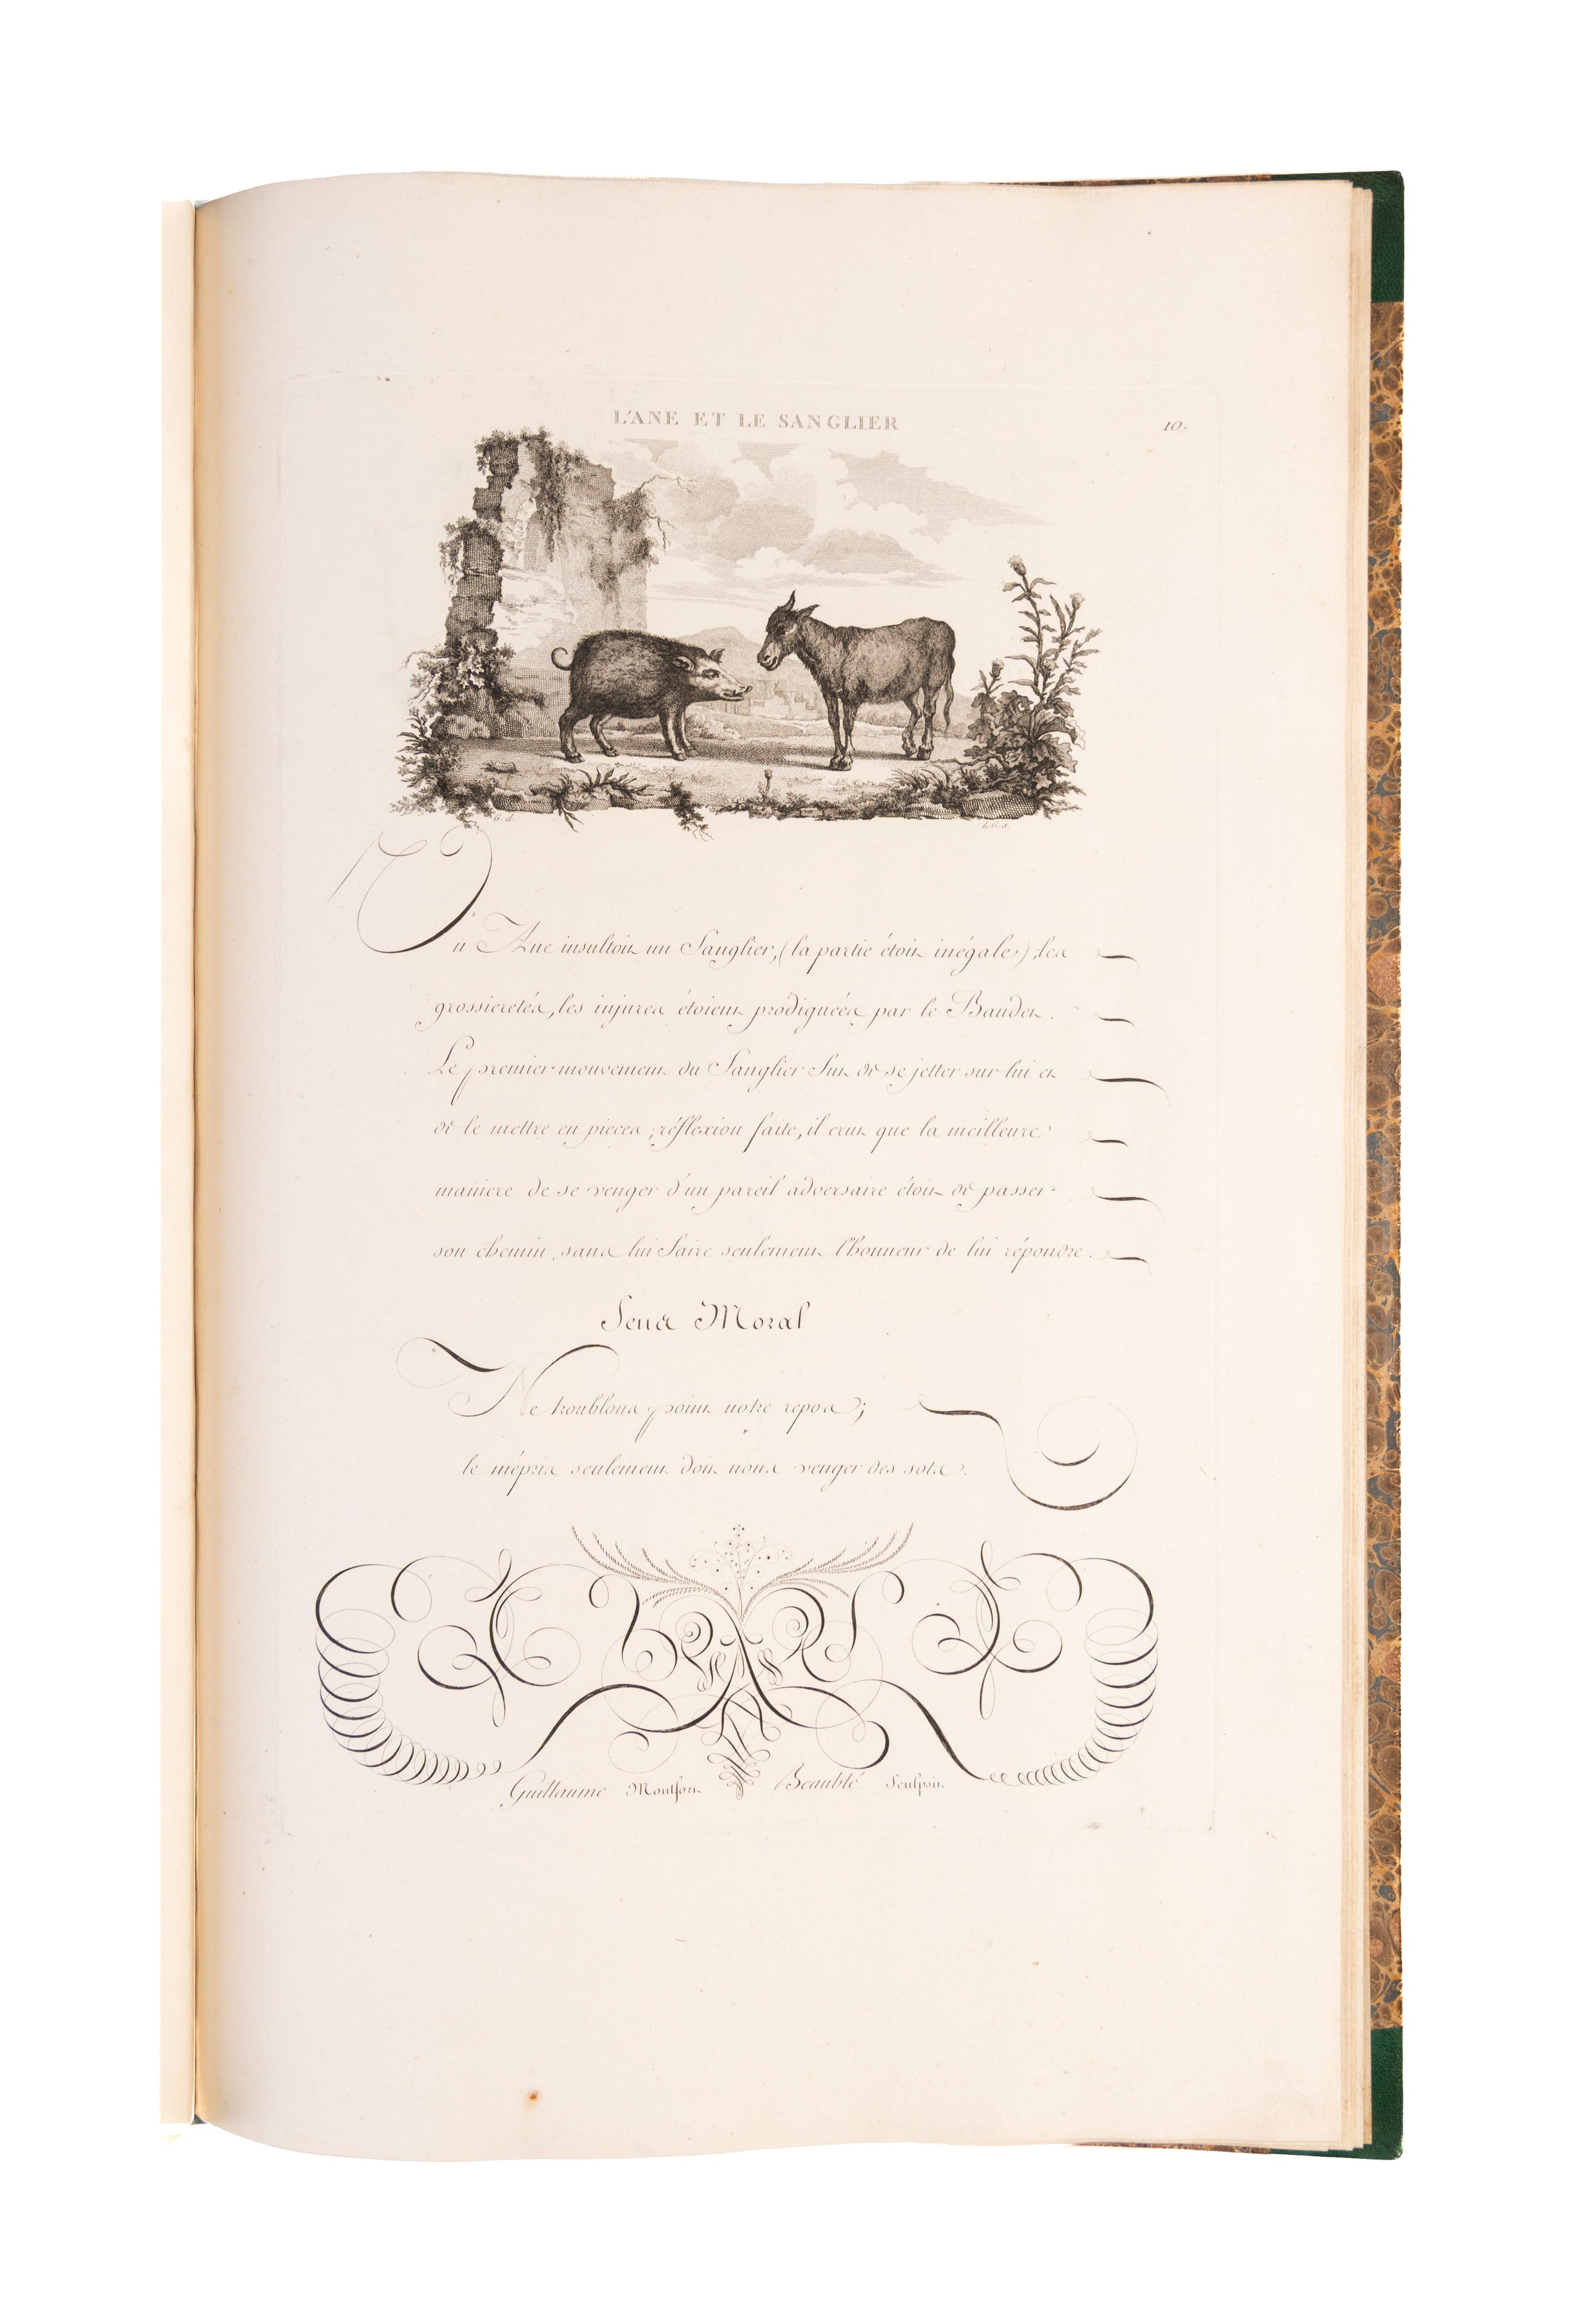 L'ANE ET LE SANGLIER
10.
G. d.
L. G. s.
Un Ane insultoit un Sanglier, (la partie étoit inégale); les
grossieretés, les injures étoient prodiguées par le Baudet.
Le premier mouvement du Sanglier fut de se jetter sur lui et
de le mettre en pieces; réflexion faite, il crut que la meilleure
maniere de se venger d'un pareil adversaire étoit de passer
son chemin, sans lui faire seulement l'honneur de lui répondre.
Sens Moral
Ne troublons point notre repos;
le mépris seulement doit nous venger des sots.
Guillaume Montfort Beaublé Sculpsit